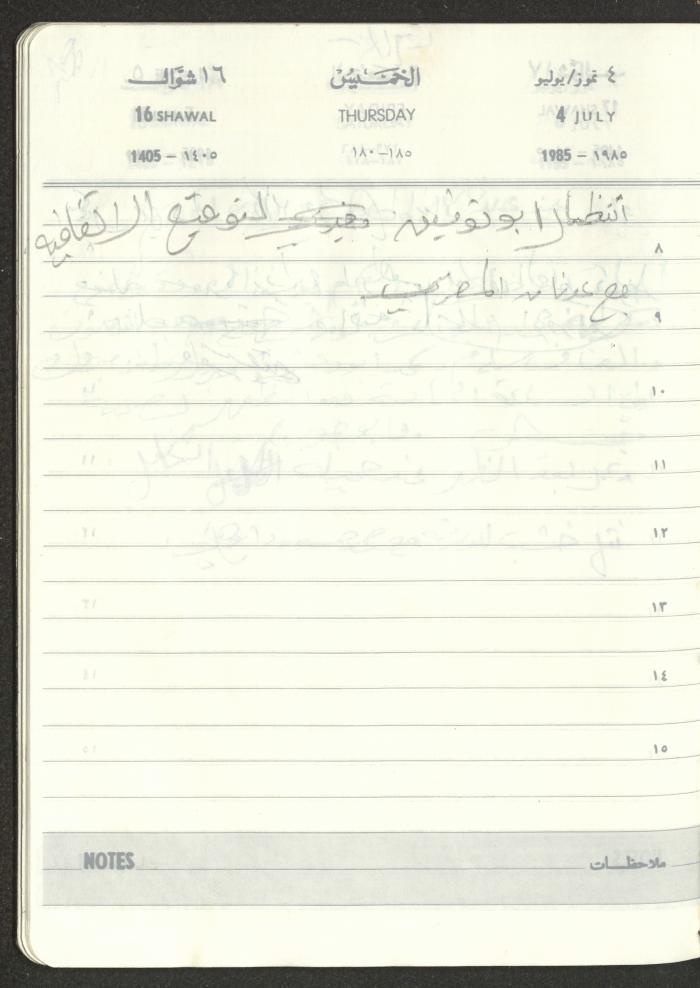 ٤ تموز/يوليو الخميس ١٦ شوّال
4 JULY THURSDAY 16 SHAWAL
1985 – ١٩٨٥ ١٨٠–١٨٥ 1405 – ١٤٠٥
انتظار ابو توفيق لتوقيع الاتفاقيه
٨
مع عدنان
٩
١٠
١١
١٢
١٣
١٤
١٥
NOTES ملاحظات